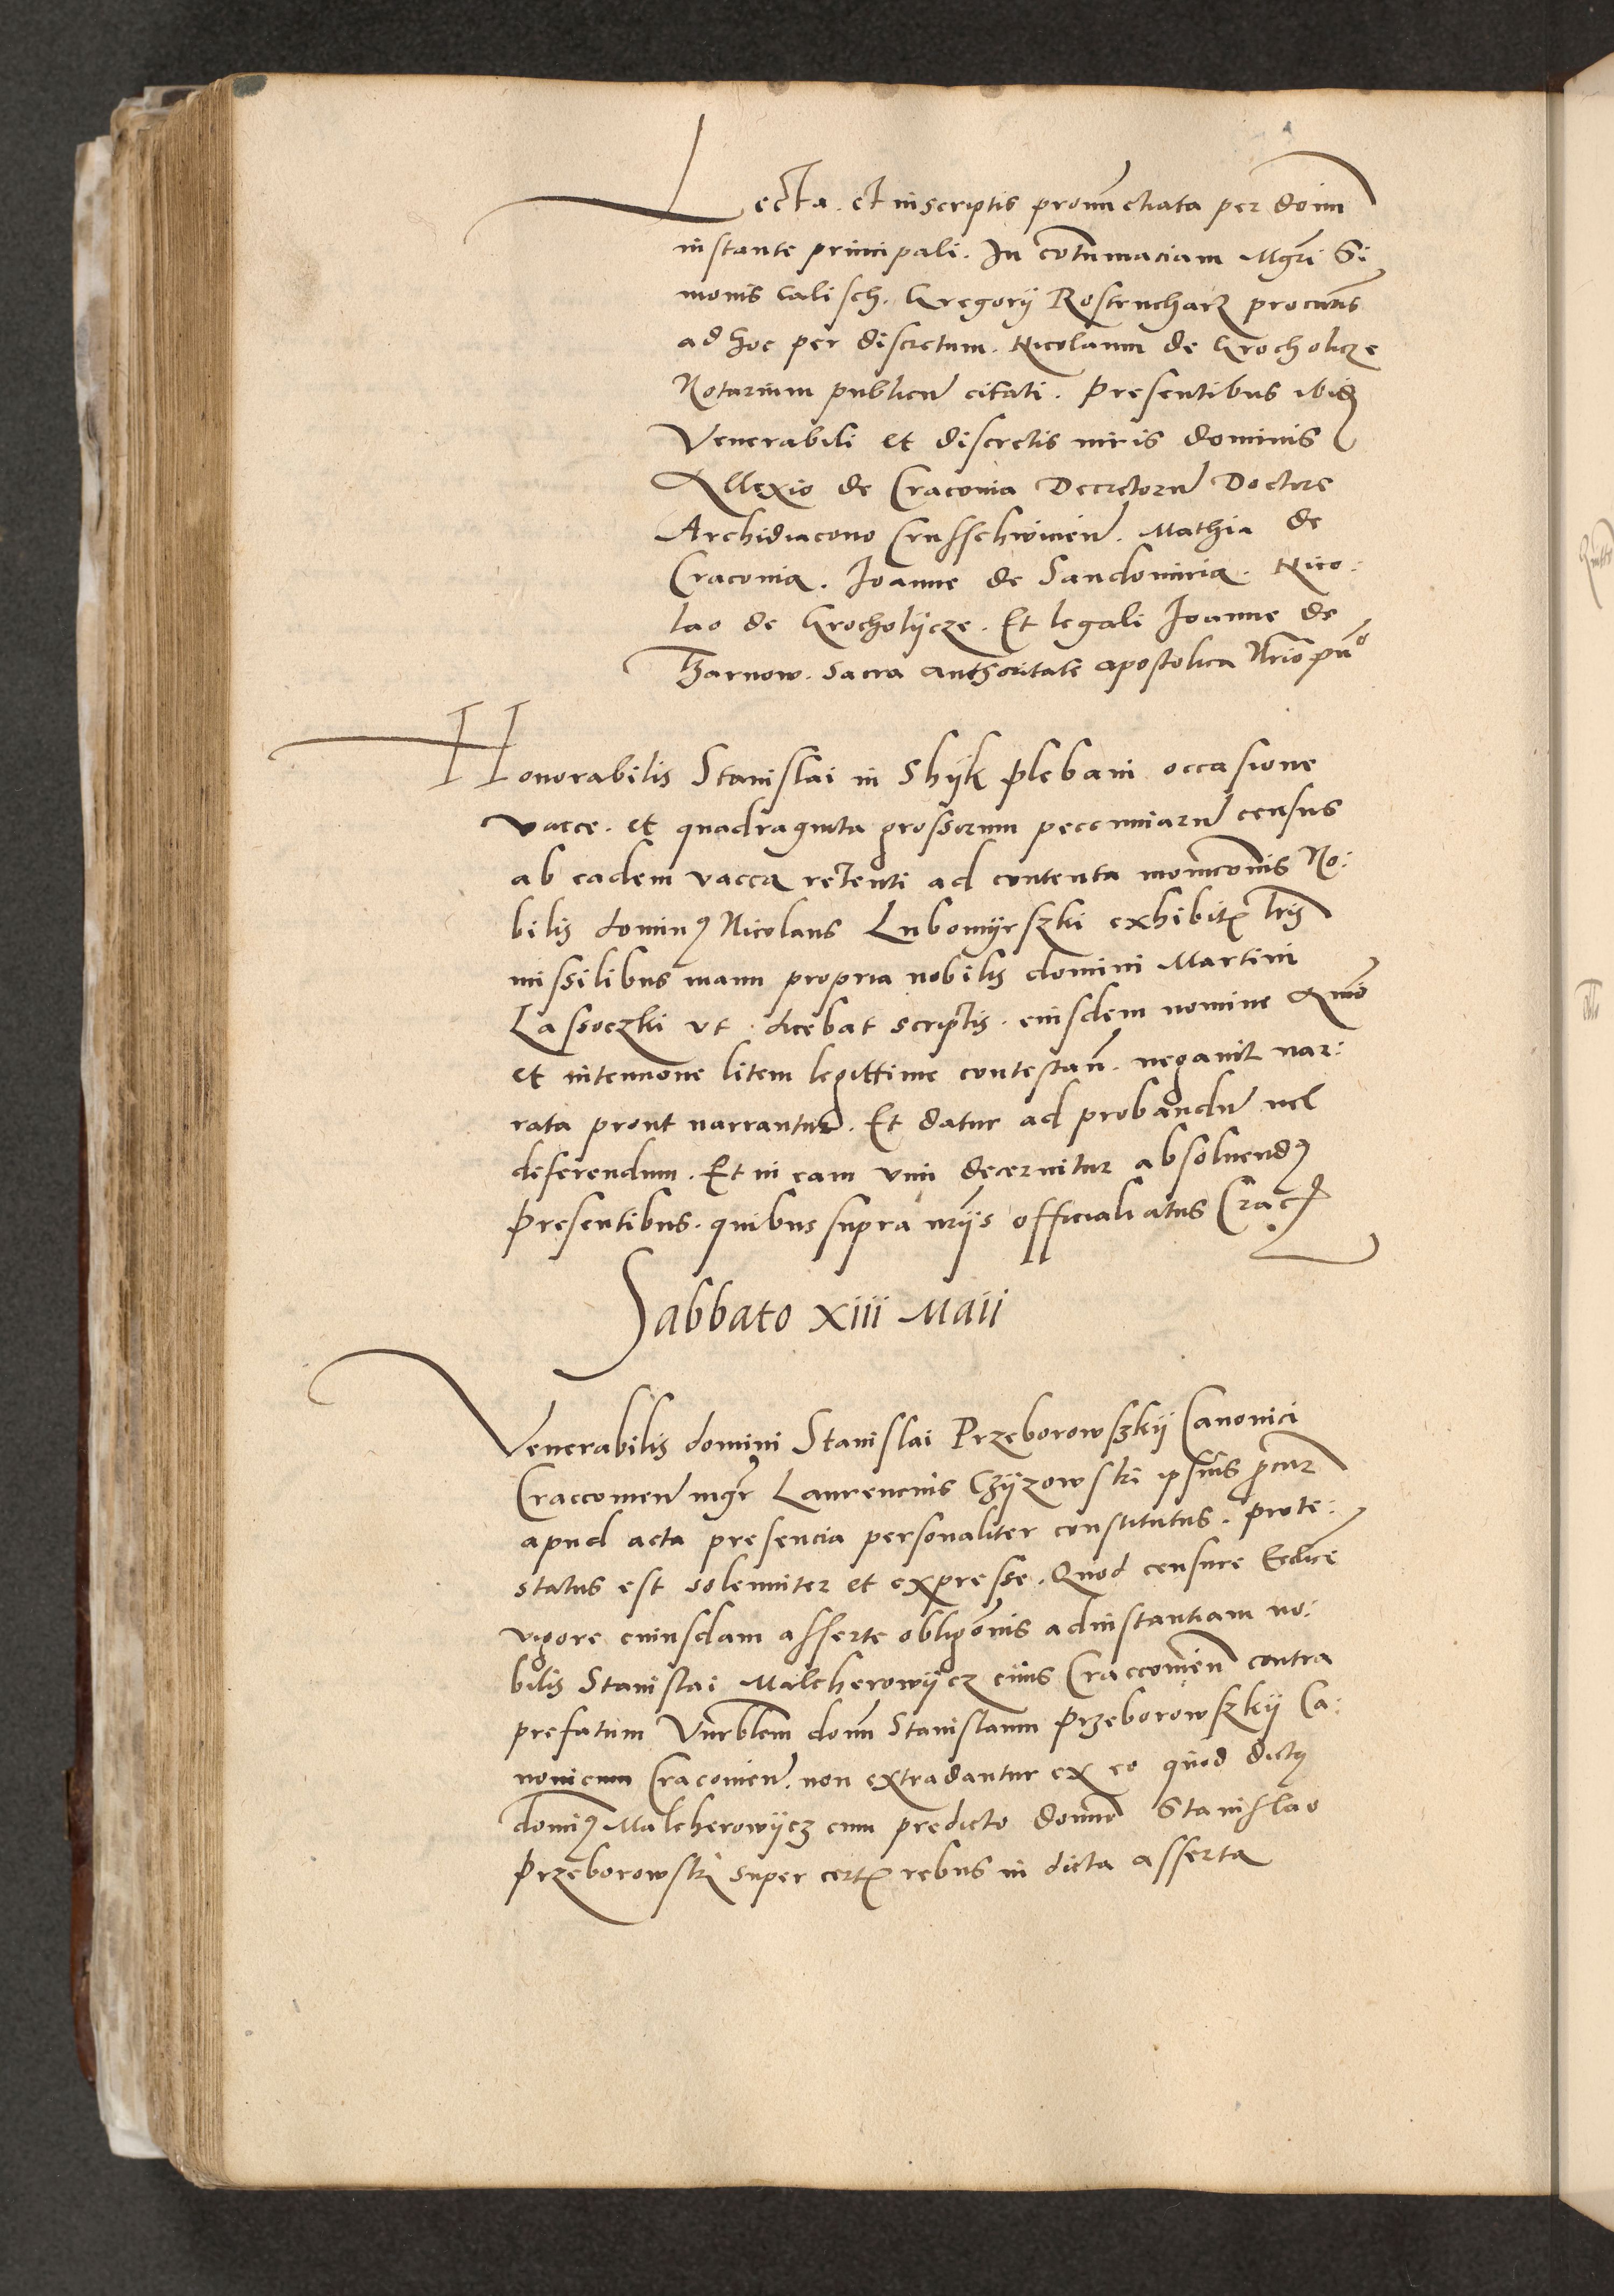 Lecta et inscriptis pronunctiata per dnm
instante principali. In cotumaciam Mgri Si:
monis Calisch. Gregorij Rostrucharz procutis
ad hoc per discretum. Nicolaum de Grocholicze
Notarium publicu citati. Presentibus ibid
Venerabili et discretis viris dominis
Allexio de Craconia Decretoru Doctore
Archidiacono Crusschwicien. Mathia de
Craconia. Joanne de Sandomiria. Nico:
lao de Grocholijcze. Et legali Joanne de
Tharnow. Sacra authoritate apostolica Nrio puco
Honorabilis Stanislai in Shijk plebani occasione
vacce. et quadraginta grossorum pecuniaru census
ab eadem vacca retenti ad contenta monicionis No:
bilis dominus Nicolaus Lubomijrszki exhibitis lris
missilibus manu propria nobilis domini Martini
Lassoczki ut. dicebat scriptis. eiusdem nomine Animo
et intencione litem legittime contestan. negavit nar:
rata prout narrantur. Et datur ad probandu vel
deferendum. Et in eam vim decernitur absoluendus
Presentibus. quibus supra nrijs officialiatus Crac
Sabbato xiii Maii
Venerabilis domini Stanislai Przeborowszkij Canonici
Craccouien mgr Laurencius Czijzowski ipsius procur
apud acta presencia personaliter constitutus. prote:
status est solenniter et expresse. Quod censure Ecclice
vigore cuiusdam asserte obligonis ad instantiam no:
bilis Stanislai Malcherowijcz civis Craccouien contra
prefatum Vnrblem domn Stanislaum Przeborowszkij Ca:
nonicum Cracouien. non extradantur ex eo quod dictus
dominus Malcherowijcz cum predicto domno Stanislao
Przeborowski super certis rebus in dicta asserta